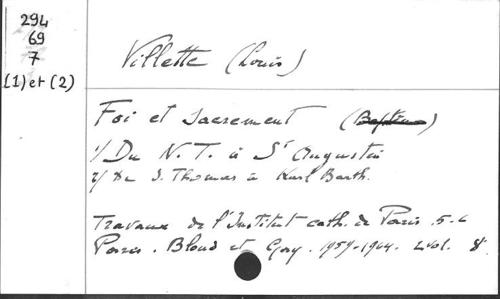 294
69
7
(1) et (2)
Villette (Louis)
Foi et Sacrement (Baptême)
1/ Du N. T. à St Augustin
2/ De S. Thomas à Karl Barth.
Travaux de l'Institut cath. de Paris. 5-6
Paris. Bloud et Gay. 1959-1964. 2 vol. 8°